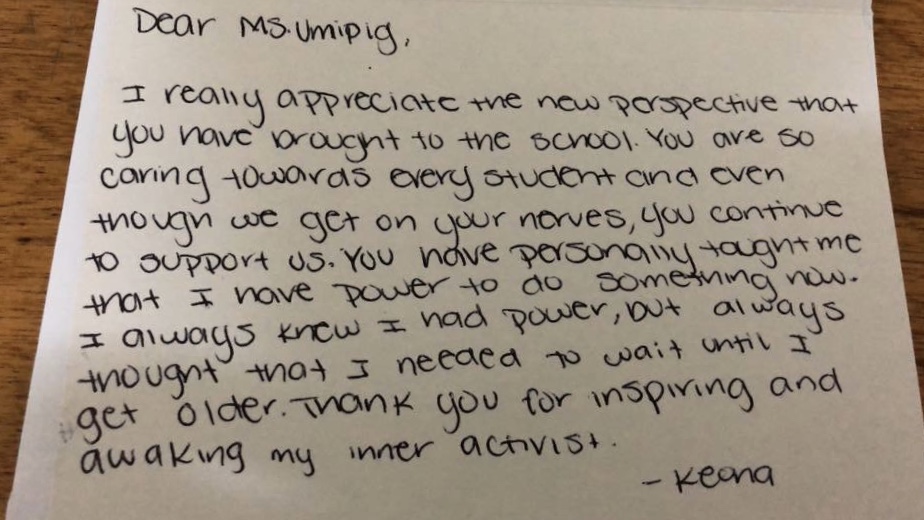 Dear Ms. Umipig,
I really appreciate the new perspective that
you have brought to the school. You are so
caring towards every student and even
though we get on your nerves, you continue
to support us. You have personally taught me
that I have power to do something now.
I always knew I had power, but always
thought that I needed to wait until I
get older. Thank you for inspiring and
awaking my inner activist.
- Keana